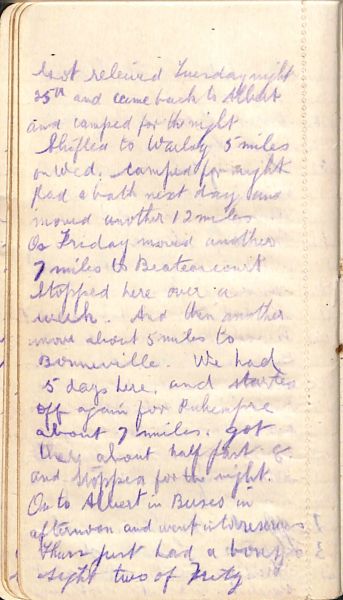 Got relieved Tuesday night
25th and came back to Albert
and camped for the night
Shifted to Warloy 5 miles
on Wed. camped for night
Had a bath next day and
moved another 12 miles
On Friday moved another
7 miles to Beateaucourt
Stopped here over a
week. And then another
move about 5 miles to
Bonneville. We had
5 days here, and started
off again for
about 7 miles. got
there about half past 6
and stopped for the night.
On to Albert in Buses in
afternoon and went in
Thurs just had a
sight two of Fritz